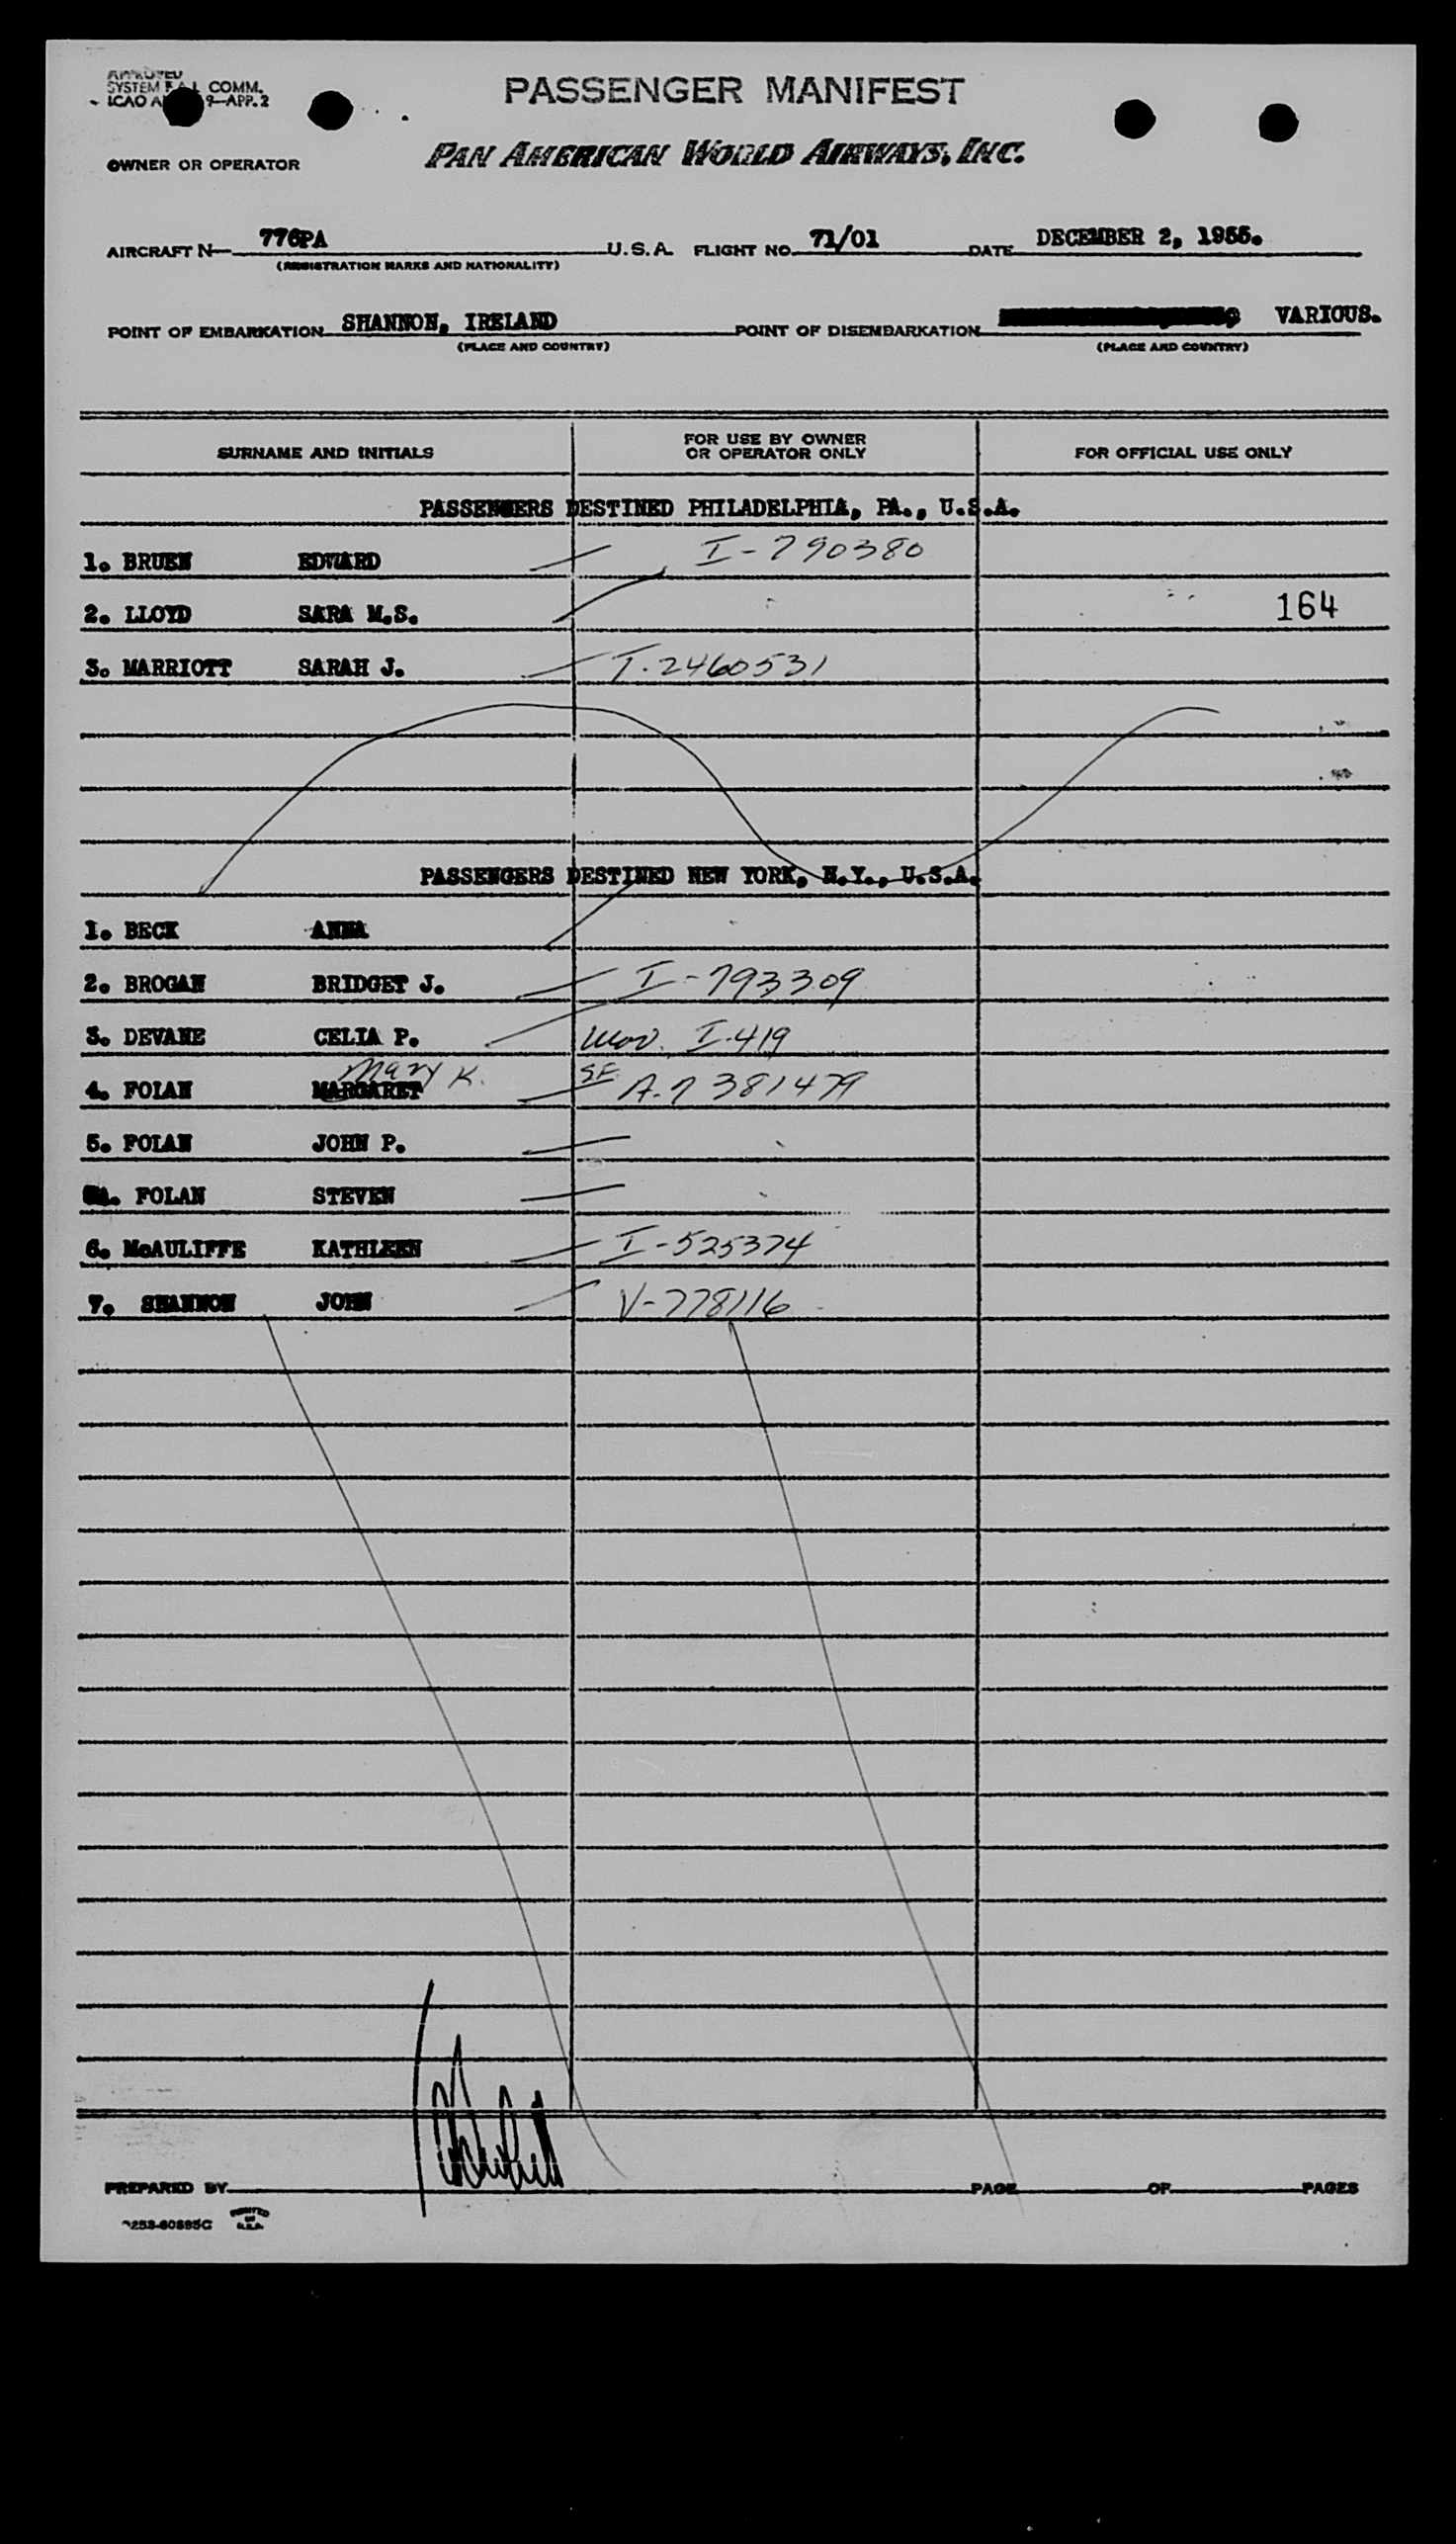 APPROVED
SYSTEM F.A.L COMM.
ICAO A 9-APP.2
PASSENGER MANIFEST
OWNER OR OPERATOR PAN AMERICAN WORLD AIRWAYS, INC.
AIRCRAFT N- 776PA U.S.A. FLIGHT NO. 71/01 DATE DECEMBER 2, 1955.
(REGISTRATION MARKS AND NATIONALITY)
POINT OF EMBARKATION SHANNON, IRELAND POINT OF DISEMBARKATION VARIOUS.
(PLACE AND COUNTRY) (PLACE AND COUNTRY)
SURNAME AND INITIALS FOR USE BY OWNER OR OPERATOR ONLY FOR OFFICIAL USE ONLY
PASSENGERS DESTINED PHILADELPHIA, PA., U.S.A.
1. BRUEN EDWARD I-790380
2. LLOYD SARA M.S. 164
3. MARRIOTT SARAH J. I-2460531
PASSENGERS DESTINED NEW YORK, N.Y., U.S.A.
1. BECK ANNA
2. BROGAN BRIDGET J. I-793309
3. DEVANE CELIA P. I-419
Mary K.
4. FOLAN MARGARET SF A-7381479
5. FOLAN JOHN P.
5A. FOLAN STEVEN
6. McAULIFFE KATHLEEN I-525374
7. SHANNON JOHN V-778116
PREPARED BY PAGE OF PAGES
PRINTED IN U.S.A.